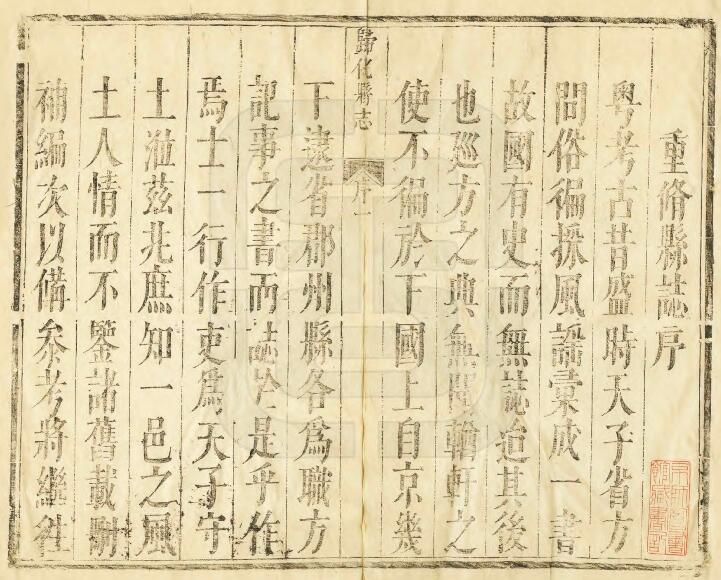 重脩縣誌序
粵考古昔盛時天子省方
問俗徧採風謡彙成一書
故國有史而無誌迨其後
也巡方之典無聞輶軒之
使不徧於下國上自京幾
歸化縣志
序一
下逮省郡州縣各爲職方
記事之書而誌於是乎作
焉士一行作吏爲天子守
土涖茲兆庶知一邑之風
土人情而不鑒諸舊載
袖編次以備參考將繼往